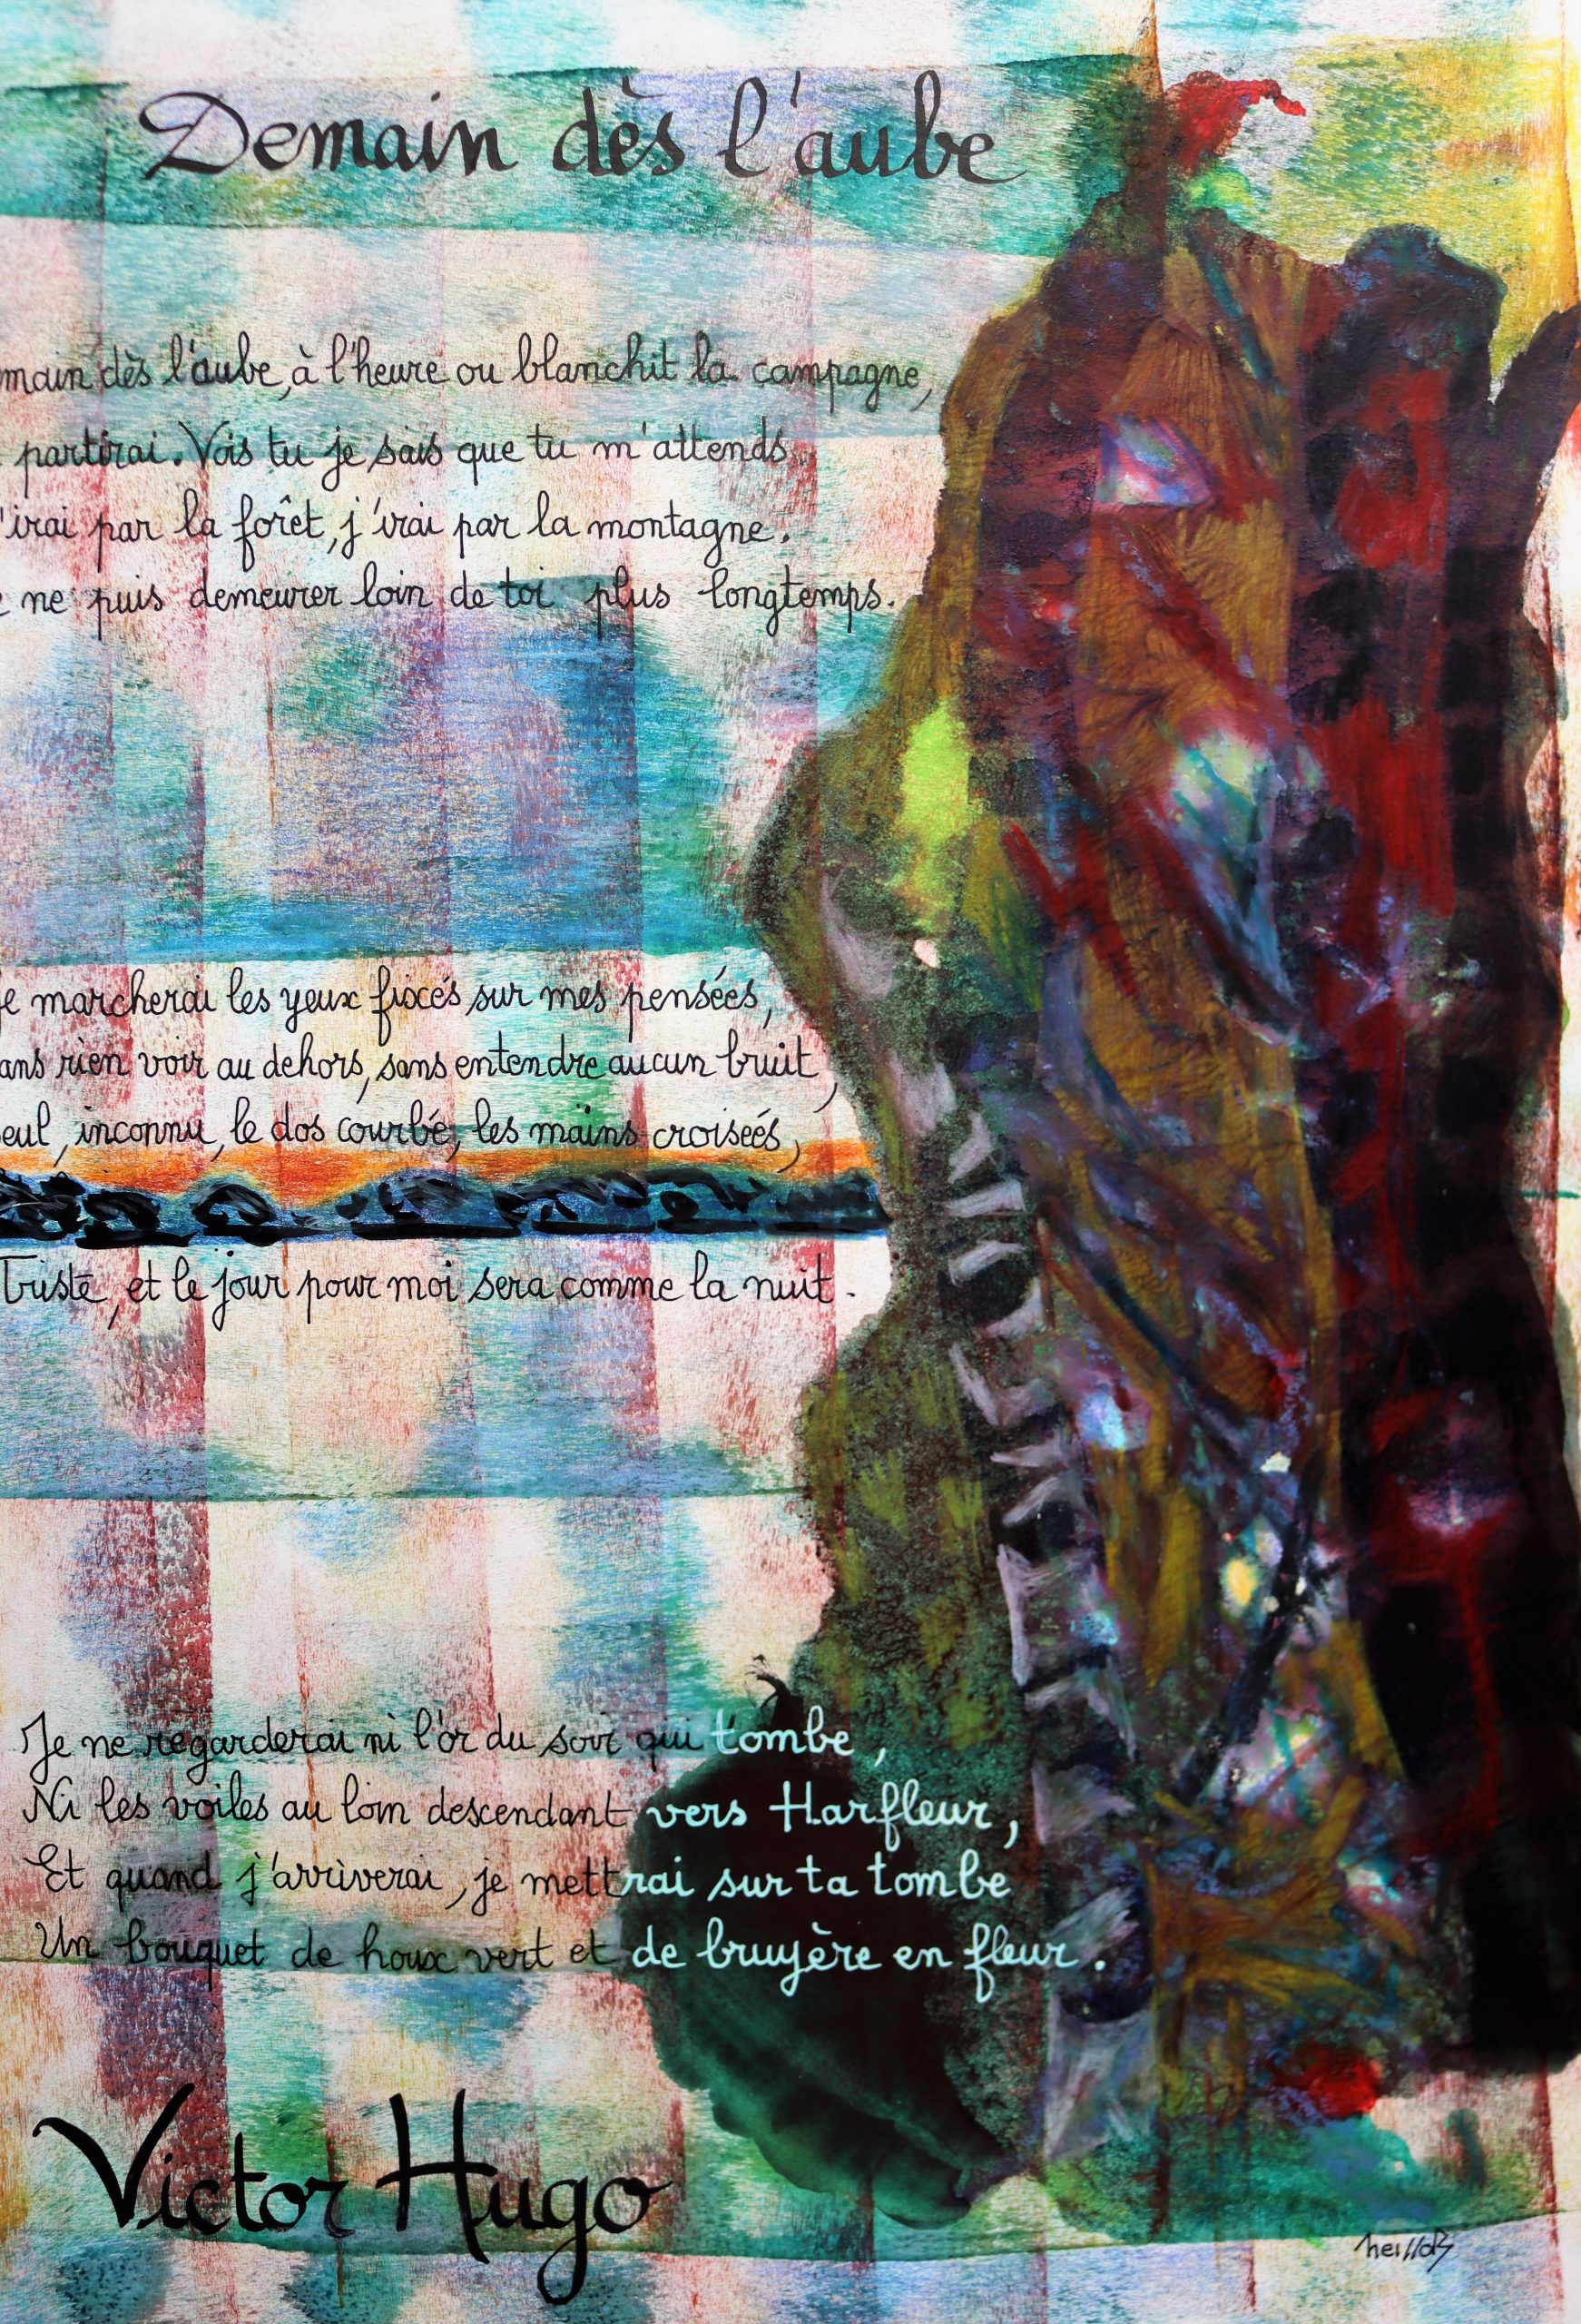 Demain dès l'aube
main dès l'aube, à l'heure ou blanchit la campagne,
partirai. Vois tu je sais que tu m'attends.
'irai par la forêt, j'irai par la montagne.
e ne puis demeurer loin de toi plus longtemps.
Je marcherai les yeux fixés sur mes pensées,
ans rien voir au dehors, sans entendre aucun bruit,
eul, inconnu, le dos courbé, les mains croisées,
Triste, et le jour pour moi sera comme la nuit.
Je ne regarderai ni l'or du soir qui tombe,
Ni les voiles au loin descendant vers Harfleur,
Et quand j'arriverai, je mettrai sur ta tombe
Un bouquet de houx vert et de bruyère en fleur.
Victor Hugo